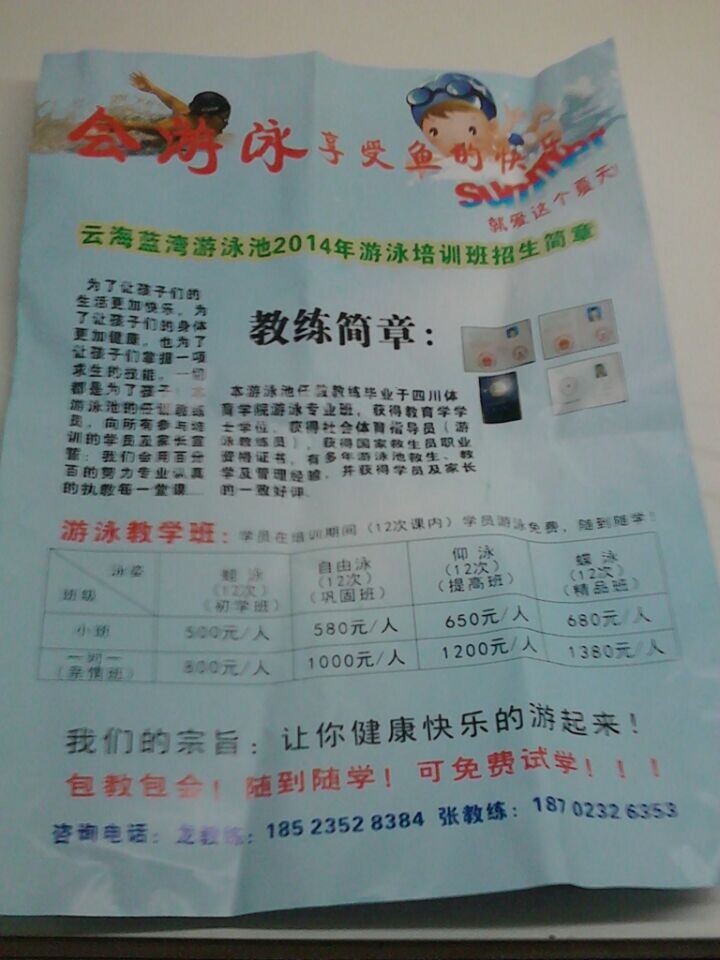 会游泳 享受鱼的快乐
Summer
就爱这个夏天!
云海蓝湾游泳池2014年游泳培训班招生简章
为了让孩子们的
生活更加快乐，为
了让孩子们的身体
更加健康，也为了
让孩子们掌握一项
求生的技能，一切
都是为了孩子！本
游泳池的任教教练
员，向所有参与培
训的学员及家长宣
誓：我们会用百分
百的努力专业认真
的执教每一堂课
教练简章：
本游泳池任教教练毕业于四川体
育学院游泳专业班，获得教育学学
士学位，获得社会体育指导员（游
泳教练员），获得国家救生员职业
资格证书，有多年游泳池救生、教
学及管理经验，并获得学员及家长
的一致好评。
游泳教学班：学员在培训期间（12次课内）学员游泳免费，随到随学!
泳姿 班级 蛙泳（12次）（初学班） 自由泳（12次）（巩固班） 仰泳（12次）（提高班） 蝶泳（12次）（精品班）
小班 500元/人 580元/人 650元/人 680元/人
一对一（亲情班） 800元/人 1000元/人 1200元/人 1380元/人
我们的宗旨：让你健康快乐的游起来！
包教包会！随到随学！可免费试学！！！
咨询电话：龙教练：18523528384 张教练：18702326353